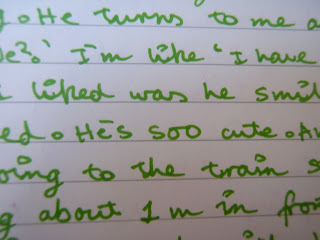 . He turns to me a
e?.' I'm like 'I have
I liked was he smil
ed. He's soo cute. A
oing to the train s
g about 1m in fro